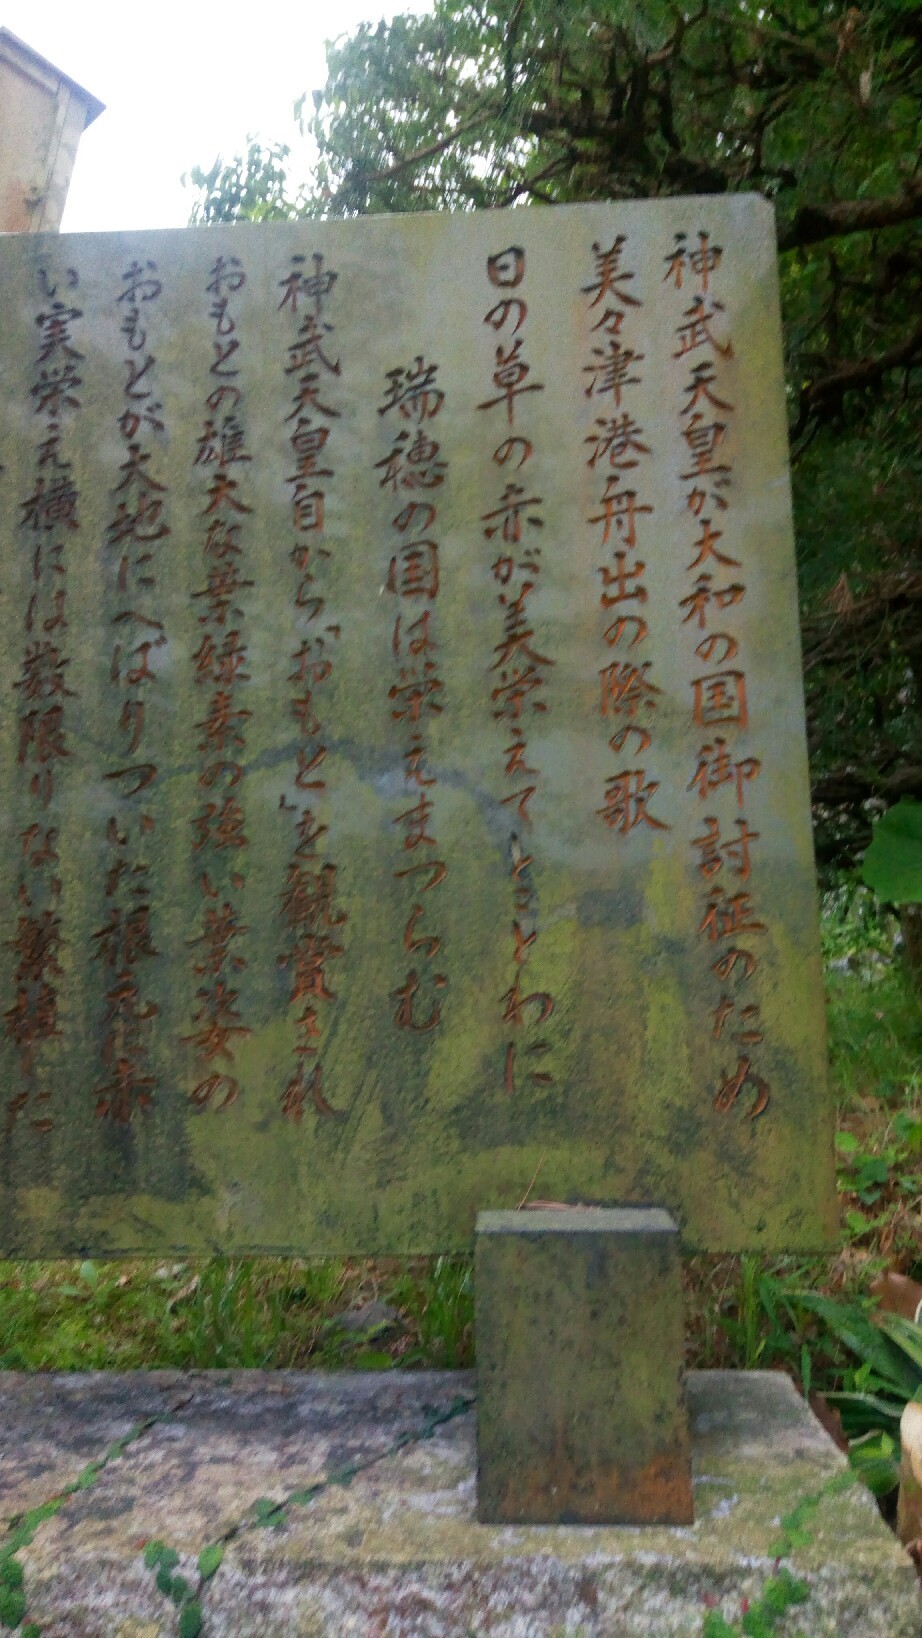 神武天皇が大和の国御討征のため
美々津港舟出の際の歌
日の草の赤が美栄えてときとわに
瑞穂の国は栄えまつらむ
神武天皇自から「おもと」を観賞され
おもとの雄大な葉緑素の強い葉姿の
おもとが大地にへばりついた根元に赤
い実栄え横には数限りない繁殖した